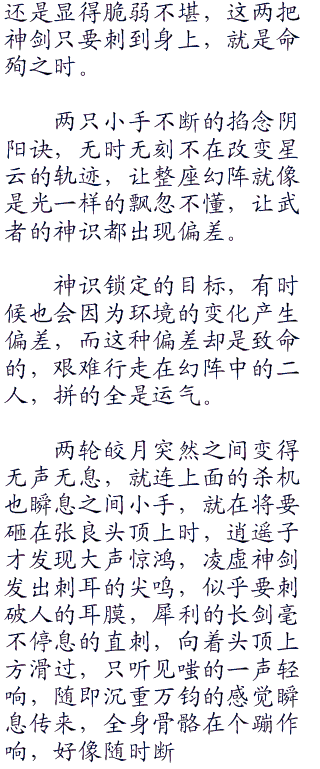 还是显得脆弱不堪，这两把
神剑只要刺到身上，就是命
殉之时。
两只小手不断的掐念阴
阳诀，无时无刻不在改变星
云的轨迹，让整座幻阵就像
是光一样的飘忽不懂，让武
者的神识都出现偏差。
神识锁定的目标，有时
候也会因为环境的变化产生
偏差，而这种偏差却是致命
的，艰难行走在幻阵中的二
人，拼的全是运气。
两轮皎月突然之间变得
无声无息，就连上面的杀机
也瞬息之间小手，就在将要
砸在张良头顶上时，逍遥子
才发现大声惊鸿，凌虚神剑
发出刺耳的尖鸣，似乎要刺
破人的耳膜，犀利的长剑毫
不停息的直刺，向着头顶上
方滑过，只听见嗤的一声轻
响，随即沉重万钧的感觉瞬
息传来，全身骨骼在个蹦作
响，好像随时断